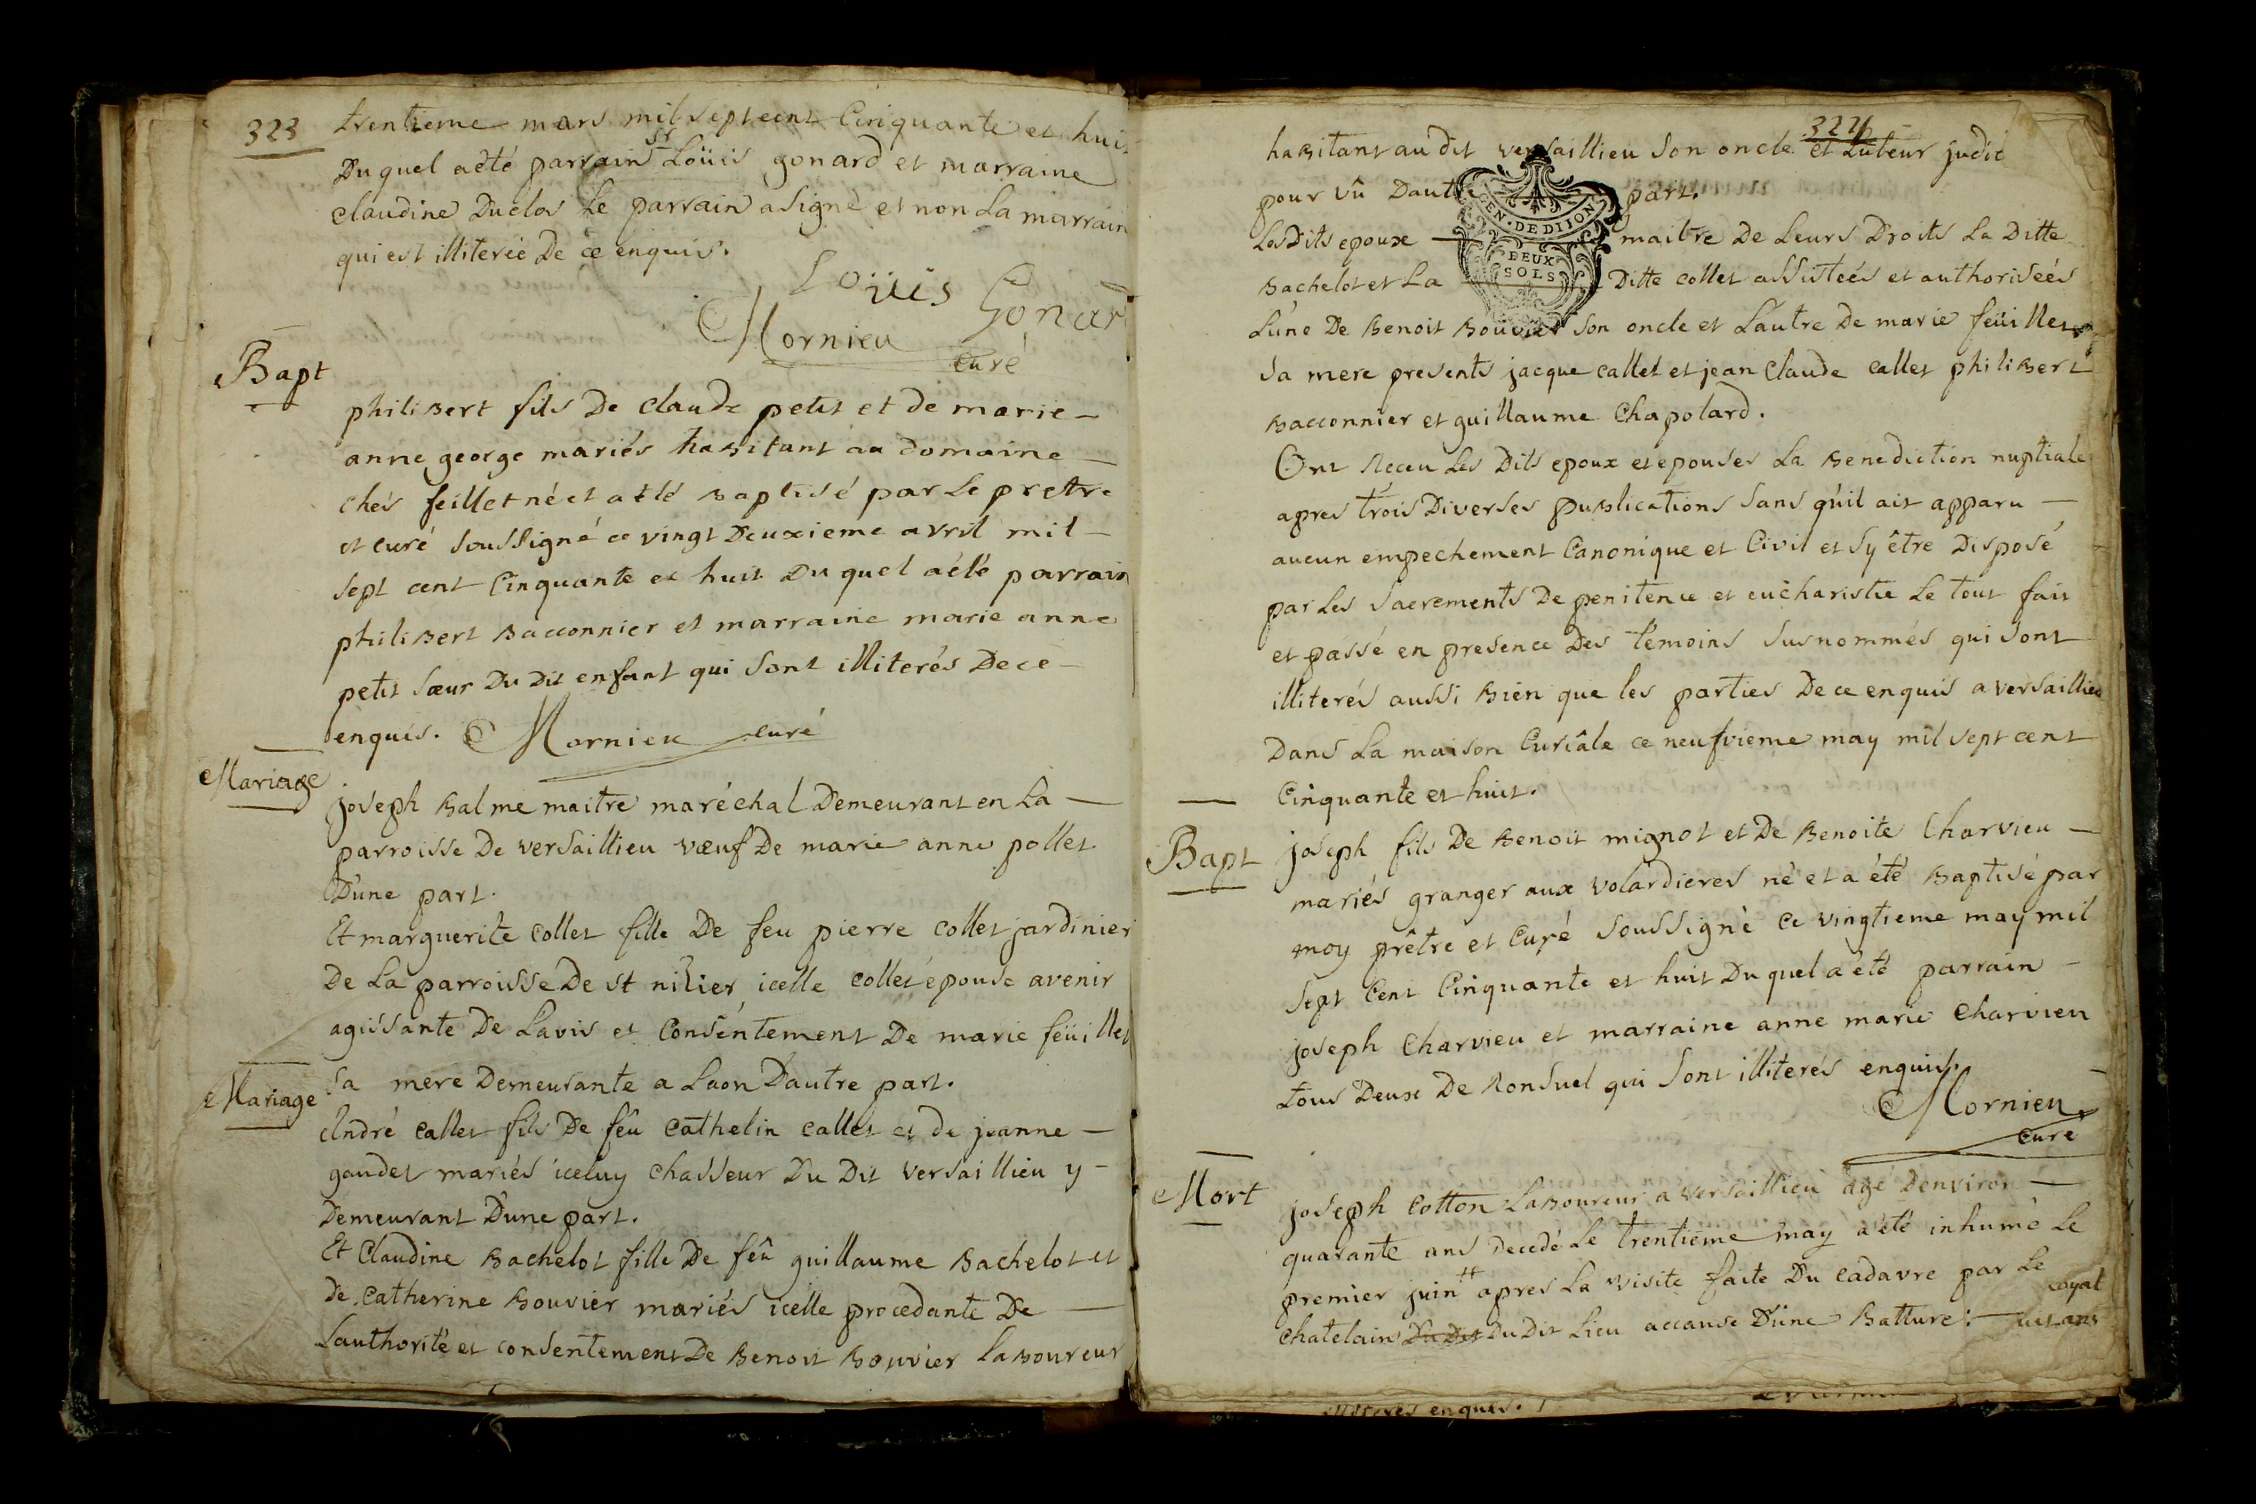 323
trentieme mars mil sept cent Cinquante et hui
Du quel a été parrain sr Loüis gonard et marraine
claudine Duclos Le parrain a signé et non La marrain
qui est illiterée De ce enquis.
Loüis Gonar
Mornieu
curé
Bapt
philibert fils De claude petit et de marie -
anne george mariés habitant au domaine -
chés feillet né et a eté baptisé par Le pretre
et curé soussigné ce vingt Deuxieme avril mil -
sept cent Cinquante et huit Du quel a été parrain
philibert bacconnier et marraine marie anne
petit sœur Du Dit enfant qui sont illiterés De ce -
enquis. Mornieu curé
Mariage
joseph balme maitre maréchal Demeurant en La -
parroisse De versaillieu vœuf De marie anne pollet
D'une part.
Et marguerite collet fille De feu pierre collet jardinier
De La parroisse De st nizier icelle collet épouse avenir
agissante De Lavis et Consentement De marie feüillet
sa mere Demeurante a Laon Dautre part.
Mariage
André callet fils De feu Cathelin callet et de jeanne -
gaudet mariés iceluy chasseur Du Dit versaillieu y -
Demeurant D'une part.
Et Claudine bachelot fille De feû guillaume bachelot et
De Catherine bouvier mariés icelle procedante De -
Lauthorité et consentement De benoit bouvier laboureur
habitant au dit versaillieu son oncle et tuteur judic
pour vû Dautre part.
LesDits epoux maitre De Leurs Droits La Ditte
bachelot et La Ditte collet assisteés et authoriseés
L'une De benoit bouvier son oncle et L'autre De marie feüillet
sa mere presents jacque callet et jean claude callet philibert
bacconnier et guillaume Chapolard.
Ont Receu Les Dits epoux et epouses La benediction nuptiale
apres trois Diverses publications sans qu'il ait apparu -
aucun empechement Canonique et Civil et sy être Disposé
par Les sacrements De penitence et eucharistie Le tout fait
et passé en presence Des témoins susnommés qui sont
illiterés aussi bien que les parties De ce enquis a versaillieu
Dans La maison Curiâle ce neufvieme may mil sept cent
Cinquante et huit.
Bapt
joseph fils De benoit mignot et De benoite Charvieu -
mariés granger aux volardieres né et a été baptisé par
moy prêtre et Curé soussigné ce vingtieme may mil
sept Cent Cinquante et huit Du quel a été parrain -
joseph Charvieu et marraine anne marie Charvieu
tous Deux De Ronsuel qui sont illiterés enquis.
Mornieu
curé
Mort
joseph Cotton Laboureur a versaillieu agé Denviron -
quarante ans decedé Le trentieme may a été inhumé Le
premier juin apres La visite faite Du cadavre par Le
chatelain Du Dit Du Dit Lieu accause D'une batture : -
royal
GEN. DE DIJON
DEUX
SOLS
illiterés enquis.